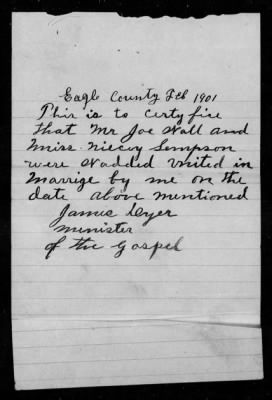 Eagle County Feb 1901
This is to Certyfire
that Mr Joe Wall and
Miss Simpson
were Wadded United in
Marrige by me on the
date above mentioned
James Dyer
Minister
of the Gospel